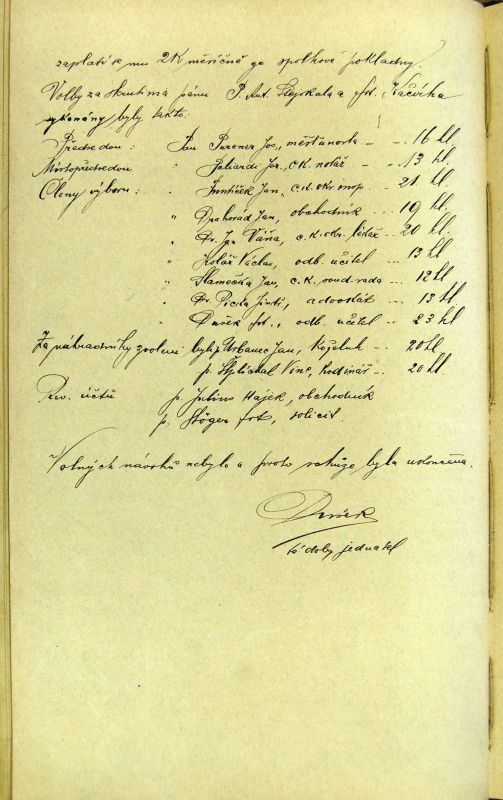 zaplatí se mu 2K měsíčně ze spolkové pokladny.
Volby za skrutinia pánů P. Ant. Stejskala a frt.
vykonány byly takto:
Předsedou: Pan Jos., měšťanosta - - 16 hl.
Místopředsedou " Jos., c.k. notář - - 13 hl.
Členy výboru: " Jan, c.k. okr. insp. - - 21 hl.
" Drahorád Jan, obchodník ... 19 hl.
" Dr. Ign. Váňa, c.k. okr. lékař .. 20 hl.
" Kolář Václav, odb. učitel - 13 hl
" Slamečka Jan, c.k. soud. rada ... 12 hl
" Dr. advokát ... 13 hl
" Dušek frt., odb. učitel - - 23 hl
Za náhradníky zvoleni byli p. Urbanec Jan, koželuh - - 20 hl
p. Vinc, hodinář - - 20 hl
Rev. účtů p. Julius Hájek, obchodník
p. Stöger frt, solicit.
Volných návrhů nebylo a proto schůze byla ukončena.
Dušek
tč. doby jednatel